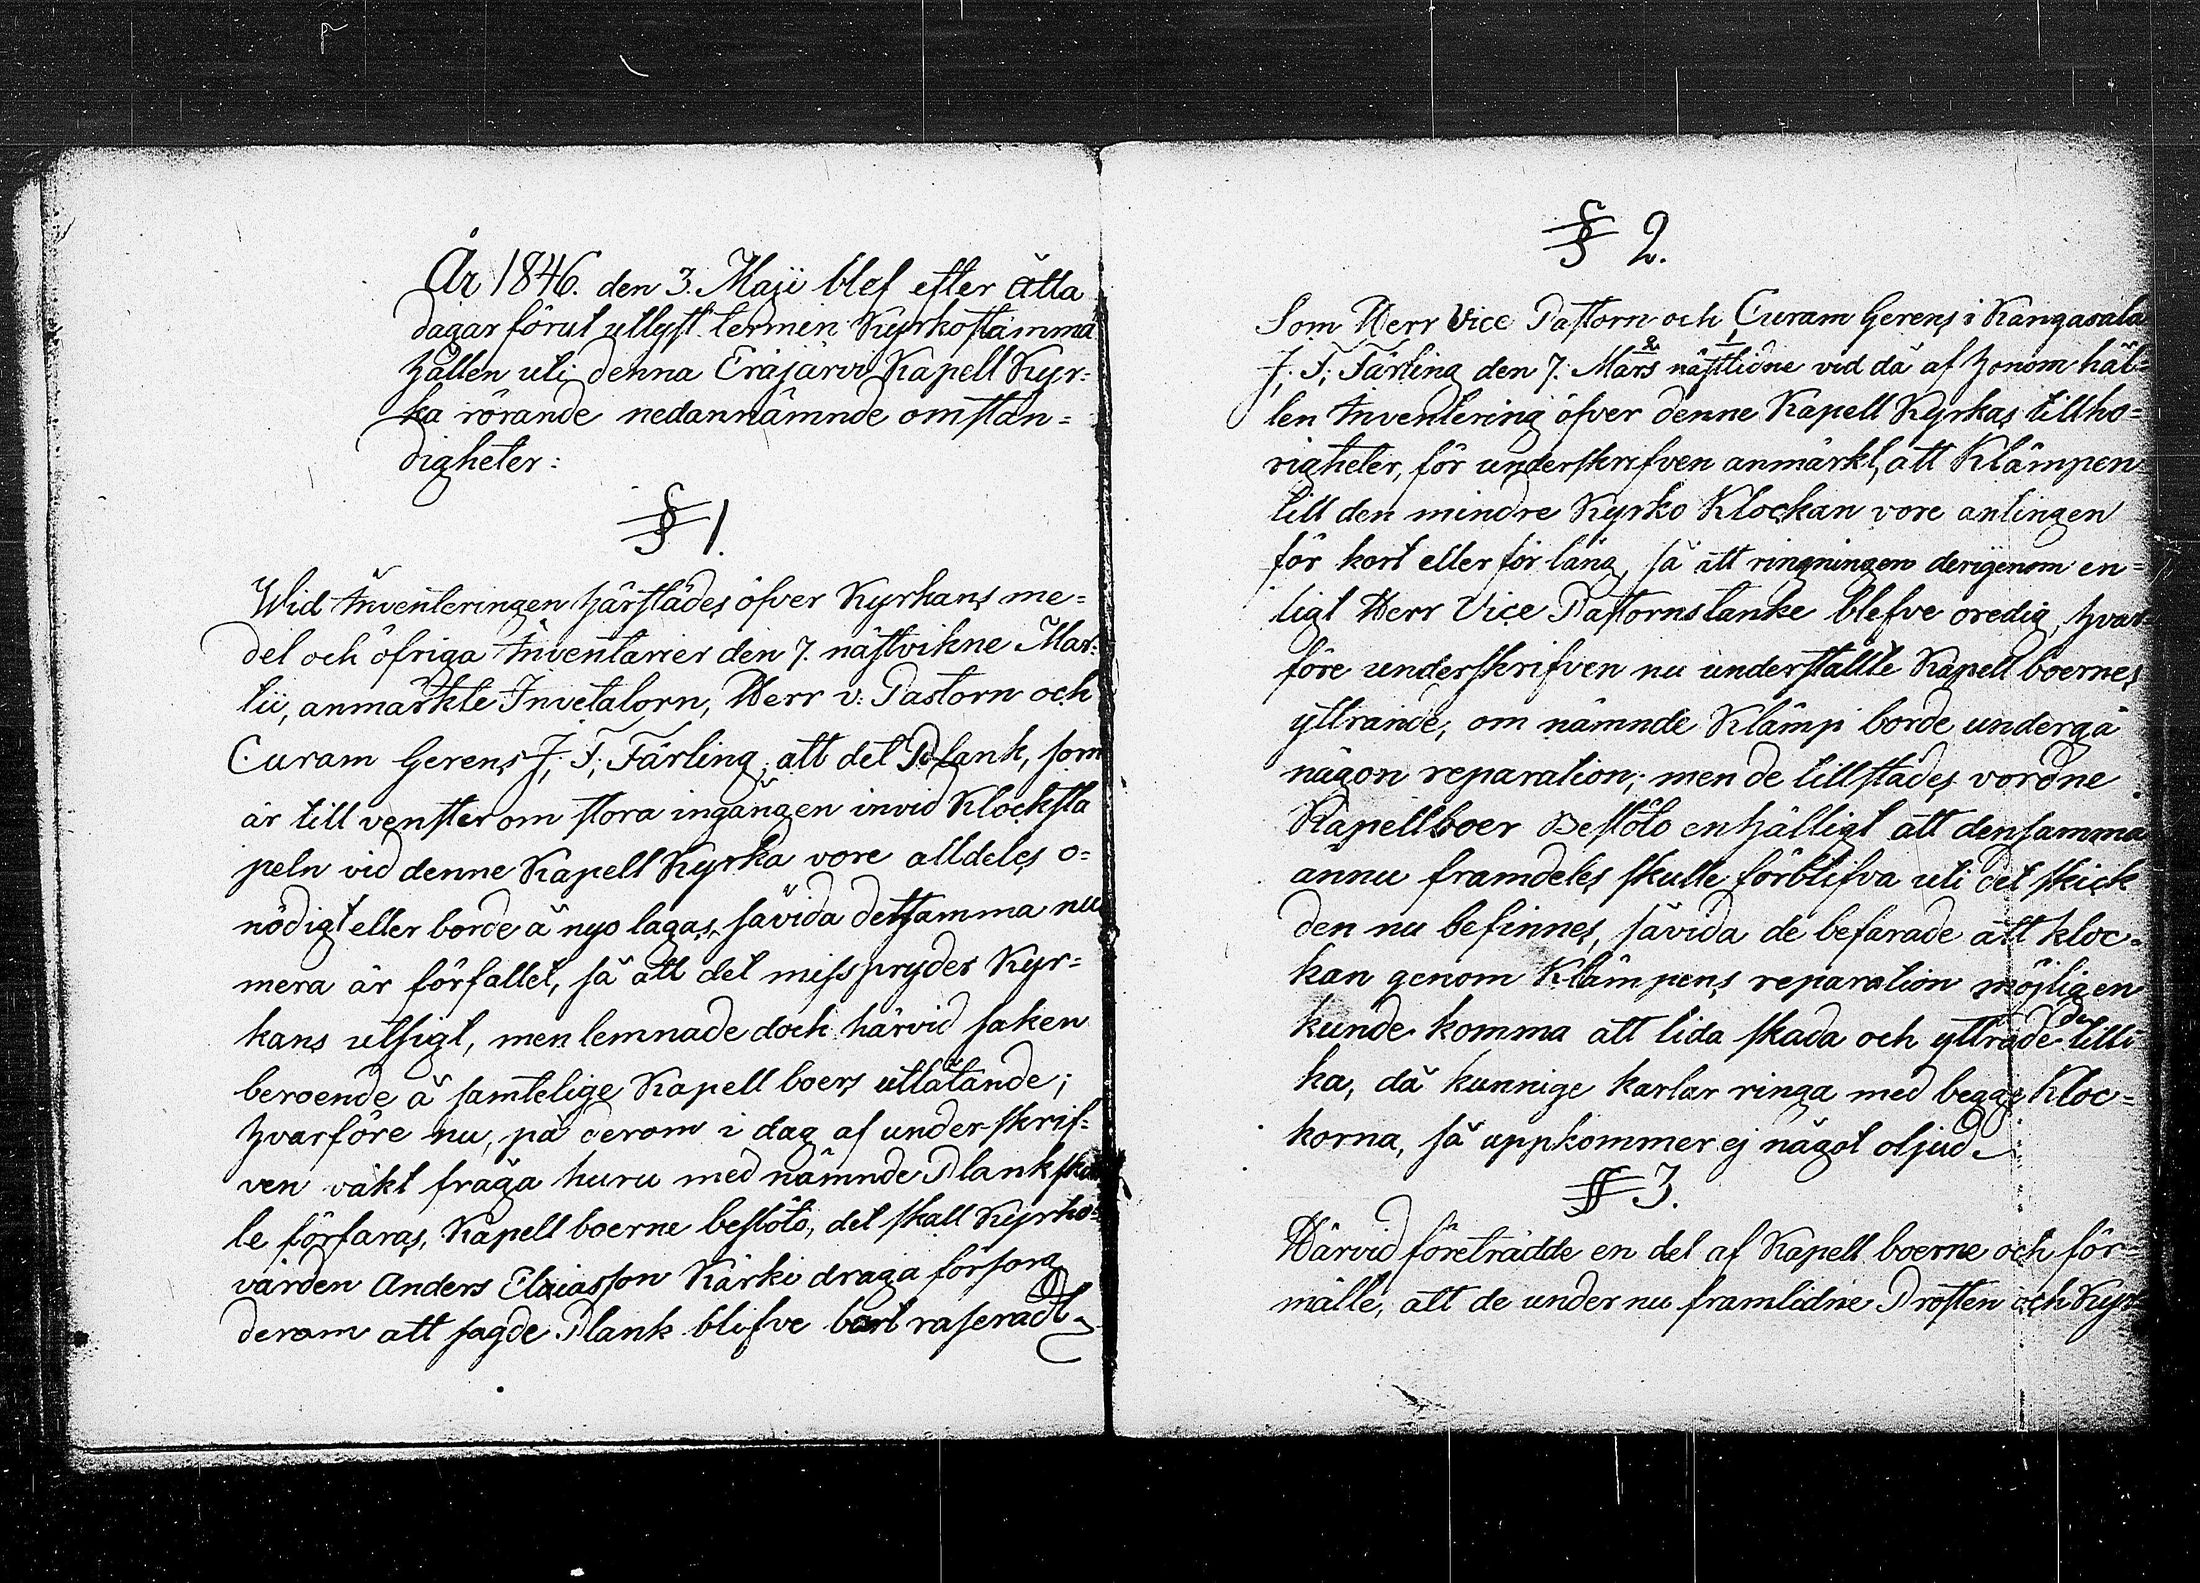 År 1846. den 3. Maji blef efter åtta
dagar förut utlyst termin Kyrkostämma
hållen uti denna Eräjärvi Kapell Kyr=
ka rörande nedannämnde omstän=
digheter:
§ 1.
Wid Inventeringen härstädes öfver Kyrkans me=
del och öfriga Inventarier den 7. nästvikne Mar=
tii, anmärkte Invetatorn, Herr v: Pastorn och
Curam Gerens J. F. Färling, att det Plank, som
är till venster om stora ingången invid Klocksta
peln vid denne Kapell Kyrka vore alldeles o=
nödigt eller borde å nyo lagas, såvida detsamma nu
mera är förfallet, så att det misspryder Kyr=
kans utsigt, men lemnade doch härvid saken
beroende å samtelige Kapell boers utlåtande;
hvarföre nu, på derom i dag af underskrif=
ven väkt fråga huru med nämnde Plank skul
le förfaras, Kapell boerne beslöto, det skall Kyrko=
värden Anders Eliasson Kärki draga försorg
derom att sagde Plank blifve bort raseradt
§ 2.
Som Herr Vice Pastorn och Curam Gerens i Kangasala
J. F. Färling den 7. Mars nästlidne vid då af honom hål=
len Inventering öfver denne Kapell Kyrkas tillhö=
righeter, för underskrifven anmärkt, att Klämpen
till den mindre Kyrko Klockan vore antingen
för kort eller för lång, så att ringningen derigenom en=
ligt Herr Vice Pastorns tanke blefve oredig, hvar=
före underskrifven nu underställte Kapell boernes
yttrande, om nämnde Klämp borde undergå
någon reparation; men de tillstädes vordne
Kapellboer Beslöto enhälligt att densamma
ännu framdeles skulle förblifva uti det skick
den nu befinnes, såvida de befarade att kloc=
kan genom Klämpens reparation möjligen
kunde komma att lida skada och yttrade de tilli=
ka, då kunnige karlar ringa med begge Kloc=
korna, så uppkommer ej något oljud.
§ 3.
Härvid företrädde en del af Kapell boerne och för=
mälte, att de under nu framlidne Prosten och Kyr